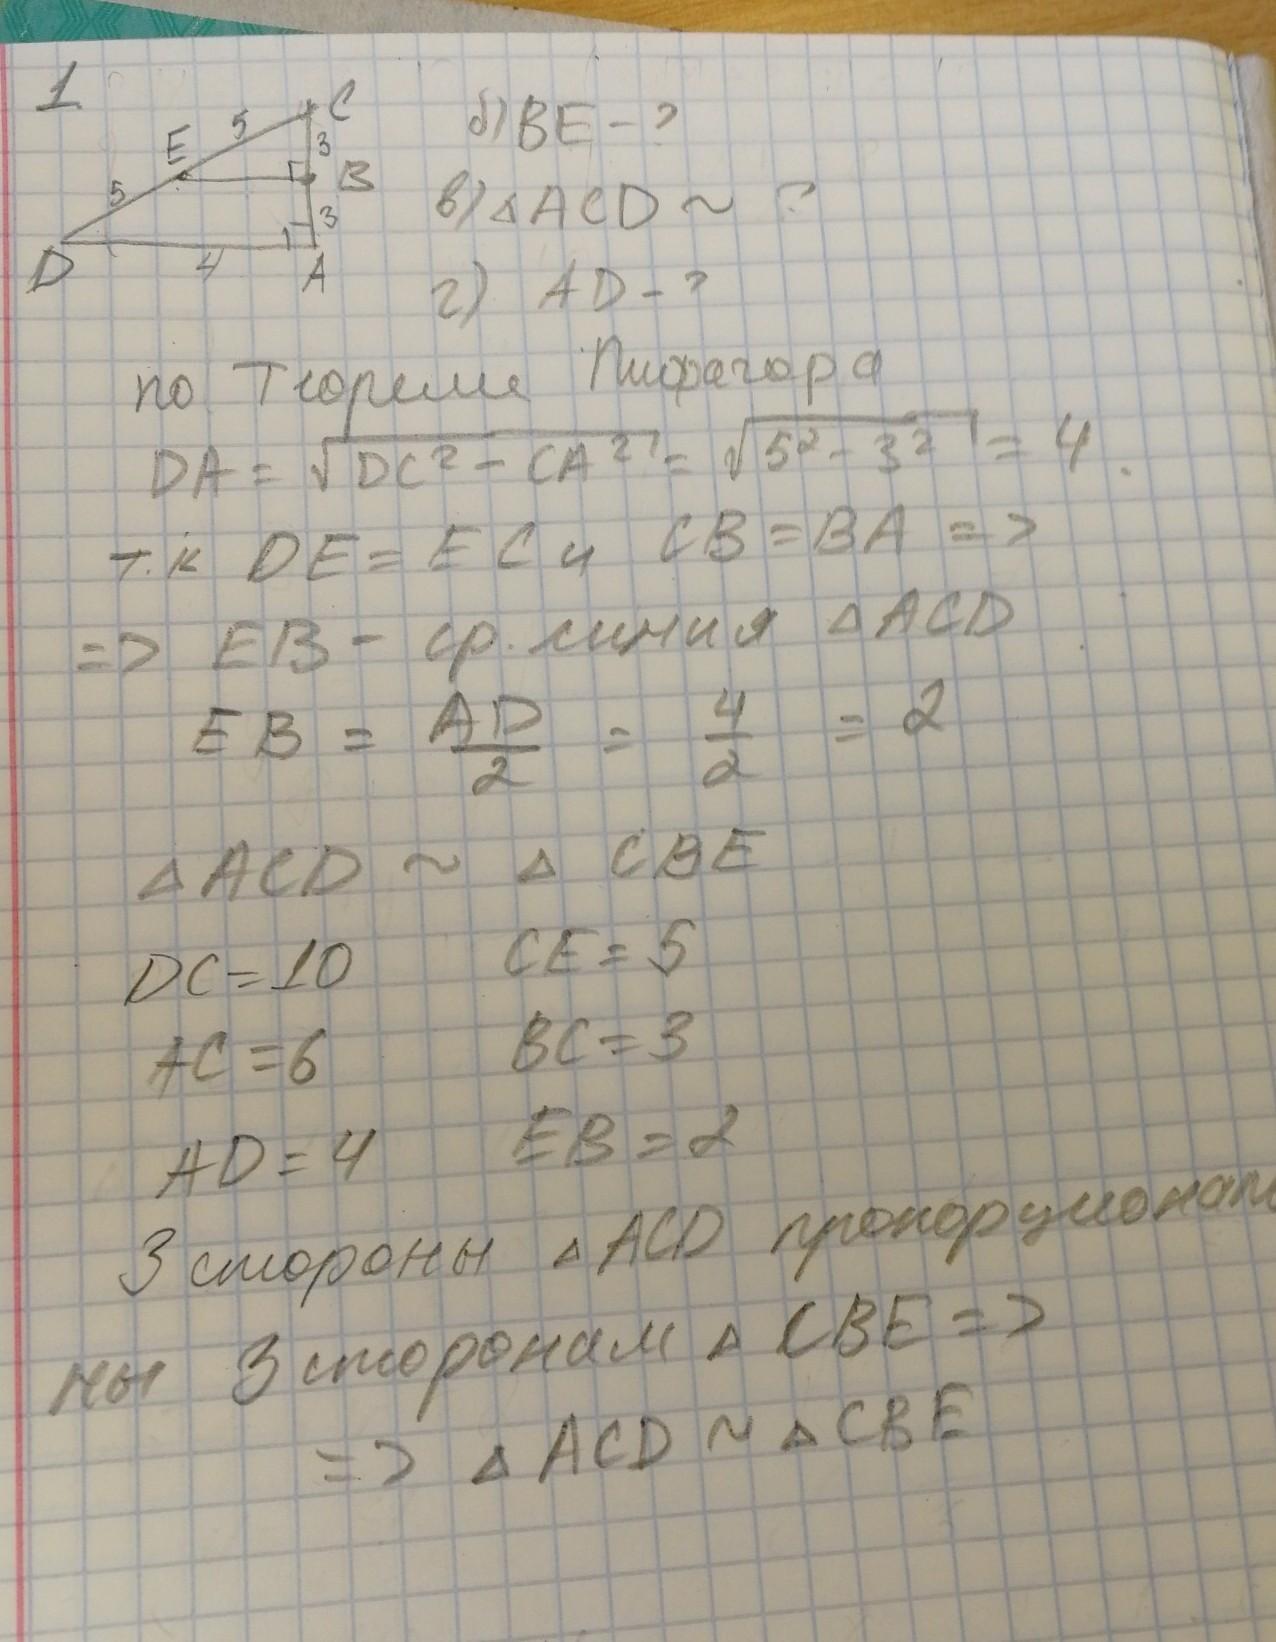 1
C
5
3
E
B
5
3
D
4
A
б) BE - ?
в) △ACD ~ ?
г) AD - ?
по Теореме Пифагора
DA = √DC² - CA² = √5² - 3² = 4.
т.к DE = EC и CB = BA =>
=> EB - ср. линия △ACD
EB = AD/2 = 4/2 = 2
△ACD ~ △ CBE
DC = 10 CE = 5
AC = 6 BC = 3
AD = 4 EB = 2
3 стороны △ACD пропорциональ
ны 3 сторонам △ CBE =>
=> △ ACD ~ △ CBE